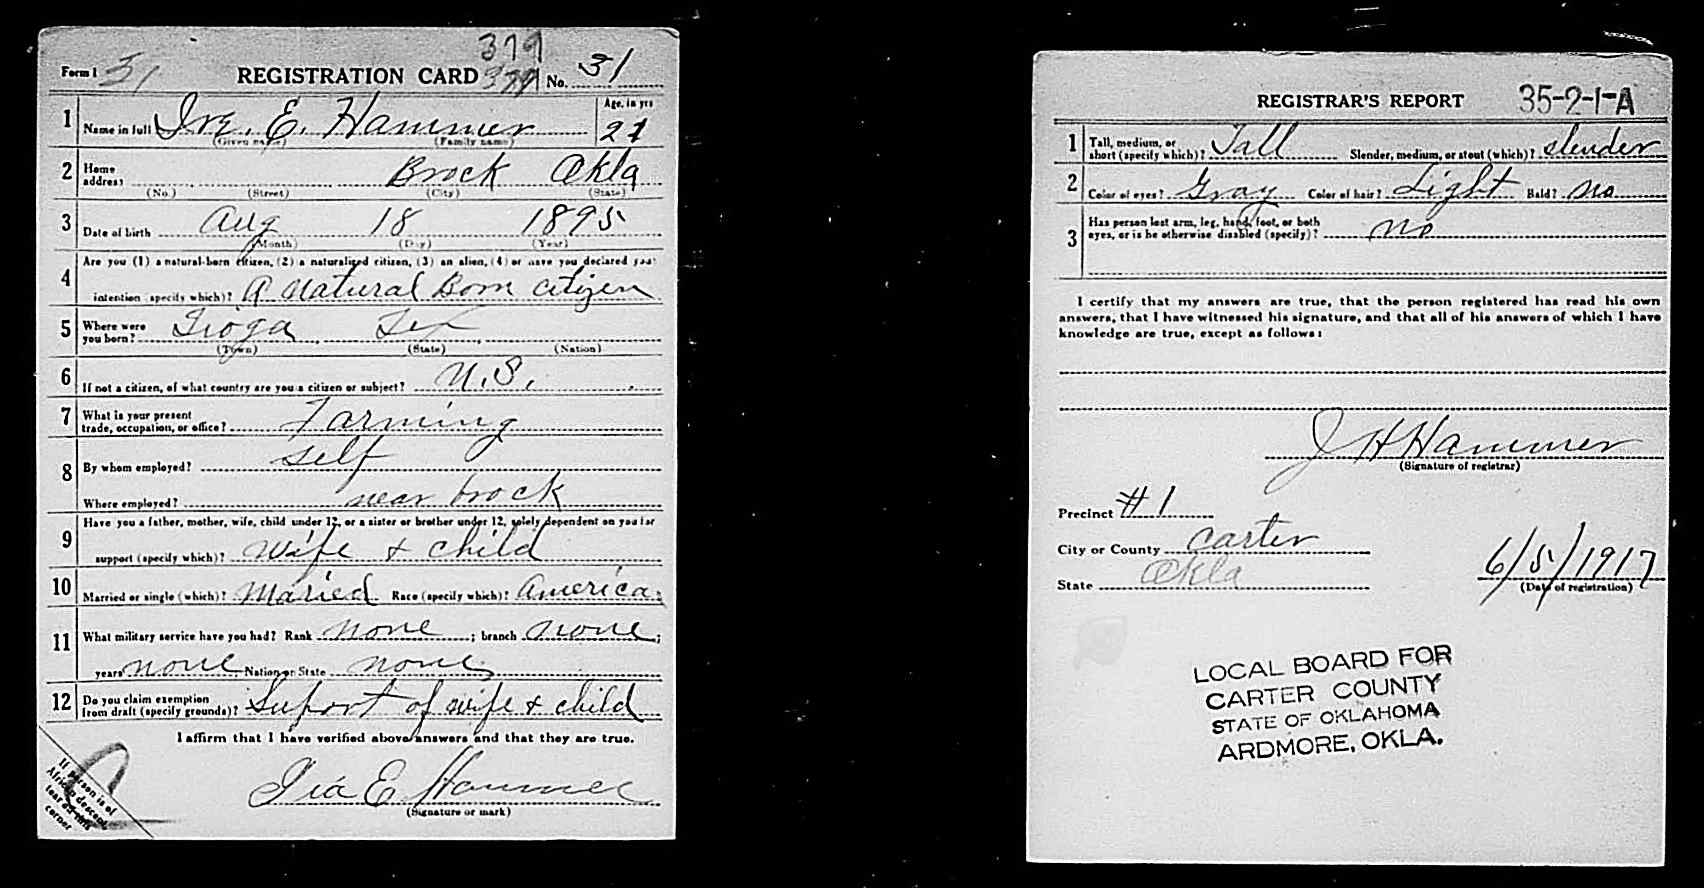 379
Form 1 31 REGISTRATION CARD 379 No. 31
1 Name in full Ira. E. Hammer Age, in yrs 21
(Given name) (Family name)
2 Home address: Brock Okla
(No.) (Street) (City) (State)
3 Date of birth Aug 18 1895
(Month) (Day) (Year)
4 Are you (1) a natural-born citizen, (2) a naturalized citizen, (3) an alien, (4) or have you declared your
intention (specify which)? A natural Born citizen
5 Where were you born? Tioga Tex
(Town) (State) (Nation)
6 If not a citizen, of what country are you a citizen or subject? U.S.
7 What is your present trade, occupation, or office? Farming
8 By whom employed? self
Where employed? near brock
9 Have you a father, mother, wife, child under 12, or a sister or brother under 12, solely dependent on you for
support (specify which)? wife & child
10 Married or single (which)? Maried Race (specify which)? America
11 What military service have you had? Rank none ; branch none ;
years none Nation or State none
12 Do you claim exemption from draft (specify grounds)? Suport of wife & child
I affirm that I have verified above answers and that they are true.
Ira E Hammer
(Signature or mark)
If person is of
African descent,
tear off this
corner
REGISTRAR'S REPORT 35-2-1-A
1 Tall, medium, or short (specify which)? Tall Slender, medium, or stout (which)? slender
2 Color of eyes? Gray Color of hair? Light Bald? no
3 Has person lost arm, leg, hand, foot, or both eyes, or is he otherwise disabled (specify)? no
I certify that my answers are true, that the person registered has read his own
answers, that I have witnessed his signature, and that all of his answers of which I have
knowledge are true, except as follows:
J H Hammer
(Signature of registrar)
Precinct #1
City or County Carter
State Okla 6/5/1917
(Date of registration)
LOCAL BOARD FOR
CARTER COUNTY
STATE OF OKLAHOMA
ARDMORE, OKLA.